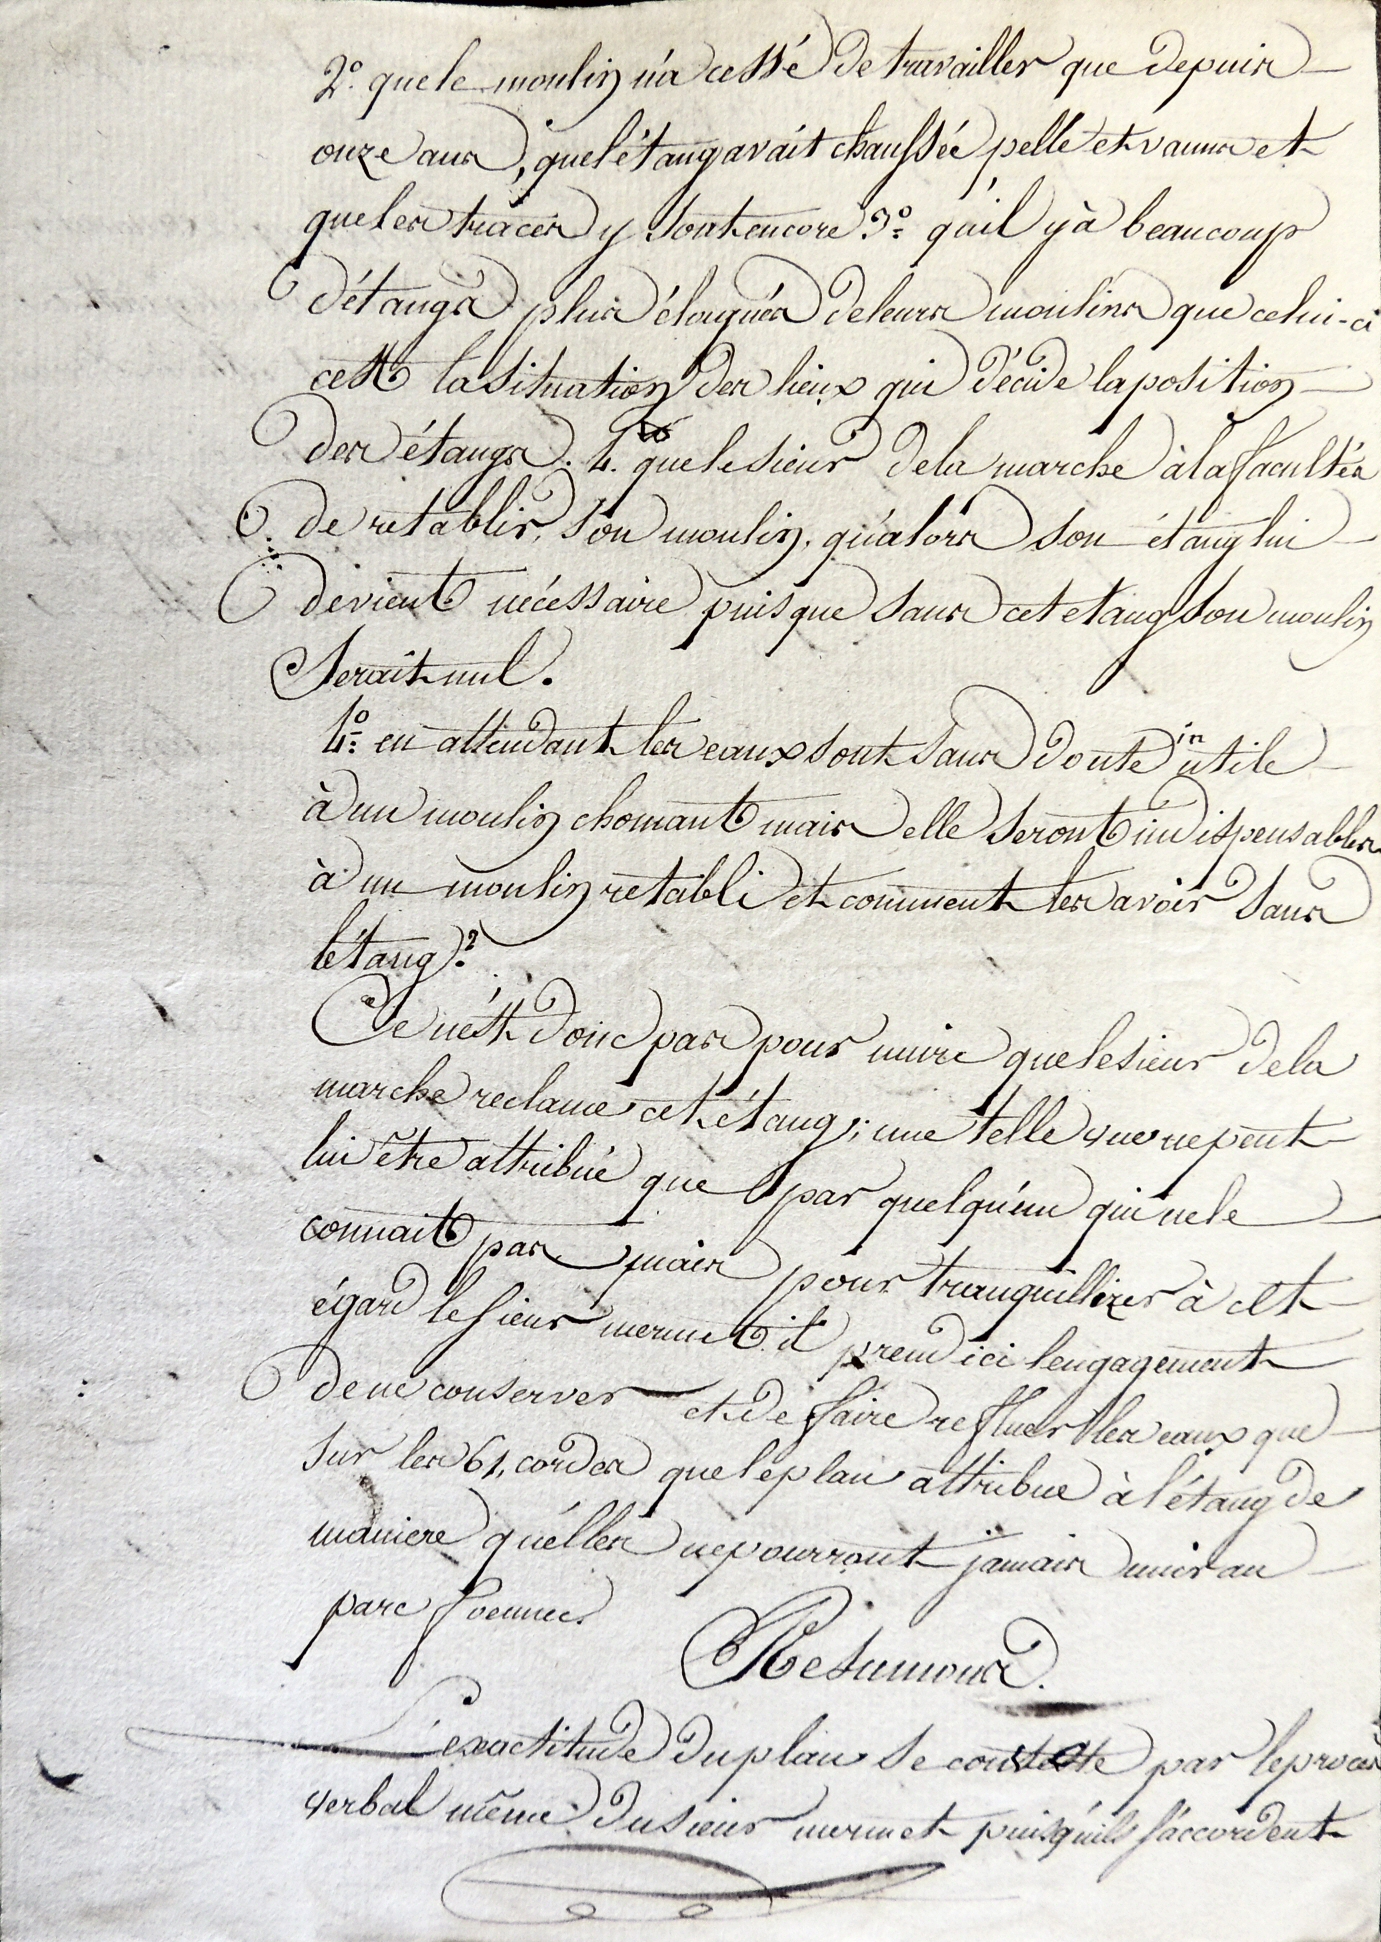 2.° que le moulin n'a cessé de travailler que depuis
onze ans, que l'étang avait chaussée pelle et vanns et
que les traces y sont encore 3.° qu'il y à beaucoup
d'étangs plus élougués de leurs moulins que celui-ci
cest la situation des lieux qui décide la position
des étangs. 4. que le sieur de la marche à la facultés
de retablir son moulin. qu'alors son étang lui
devient nécessaire puisque sans cet etang son moulin
serait nul.
4.° en attendant les eaux sont sans doute inutile
à un moulin chomant mais elle seront indispensables
à un moulin retabli et comment les avoir sans
l'étang?
Ce n'est donc pas pour nuire que le sieur de la
marche reclame cet étang; une telle vue ne peut
lui être attribué que par quelqu'un qui ne le
connait pas mais pour tranquillizer à cet
égard le sieur mermet il prend ici lengagement
de ne conserver et de faire refluer les eaux que
sur les 61, cordes que le plan attribue à l'étang de
maniere qu'elles ne pourront jamais nuir au
parc foennee.
Resumons.
L'exactitude du plan se constate par le procès
verbal même du sieur mermet puisqu'ils s'accordent